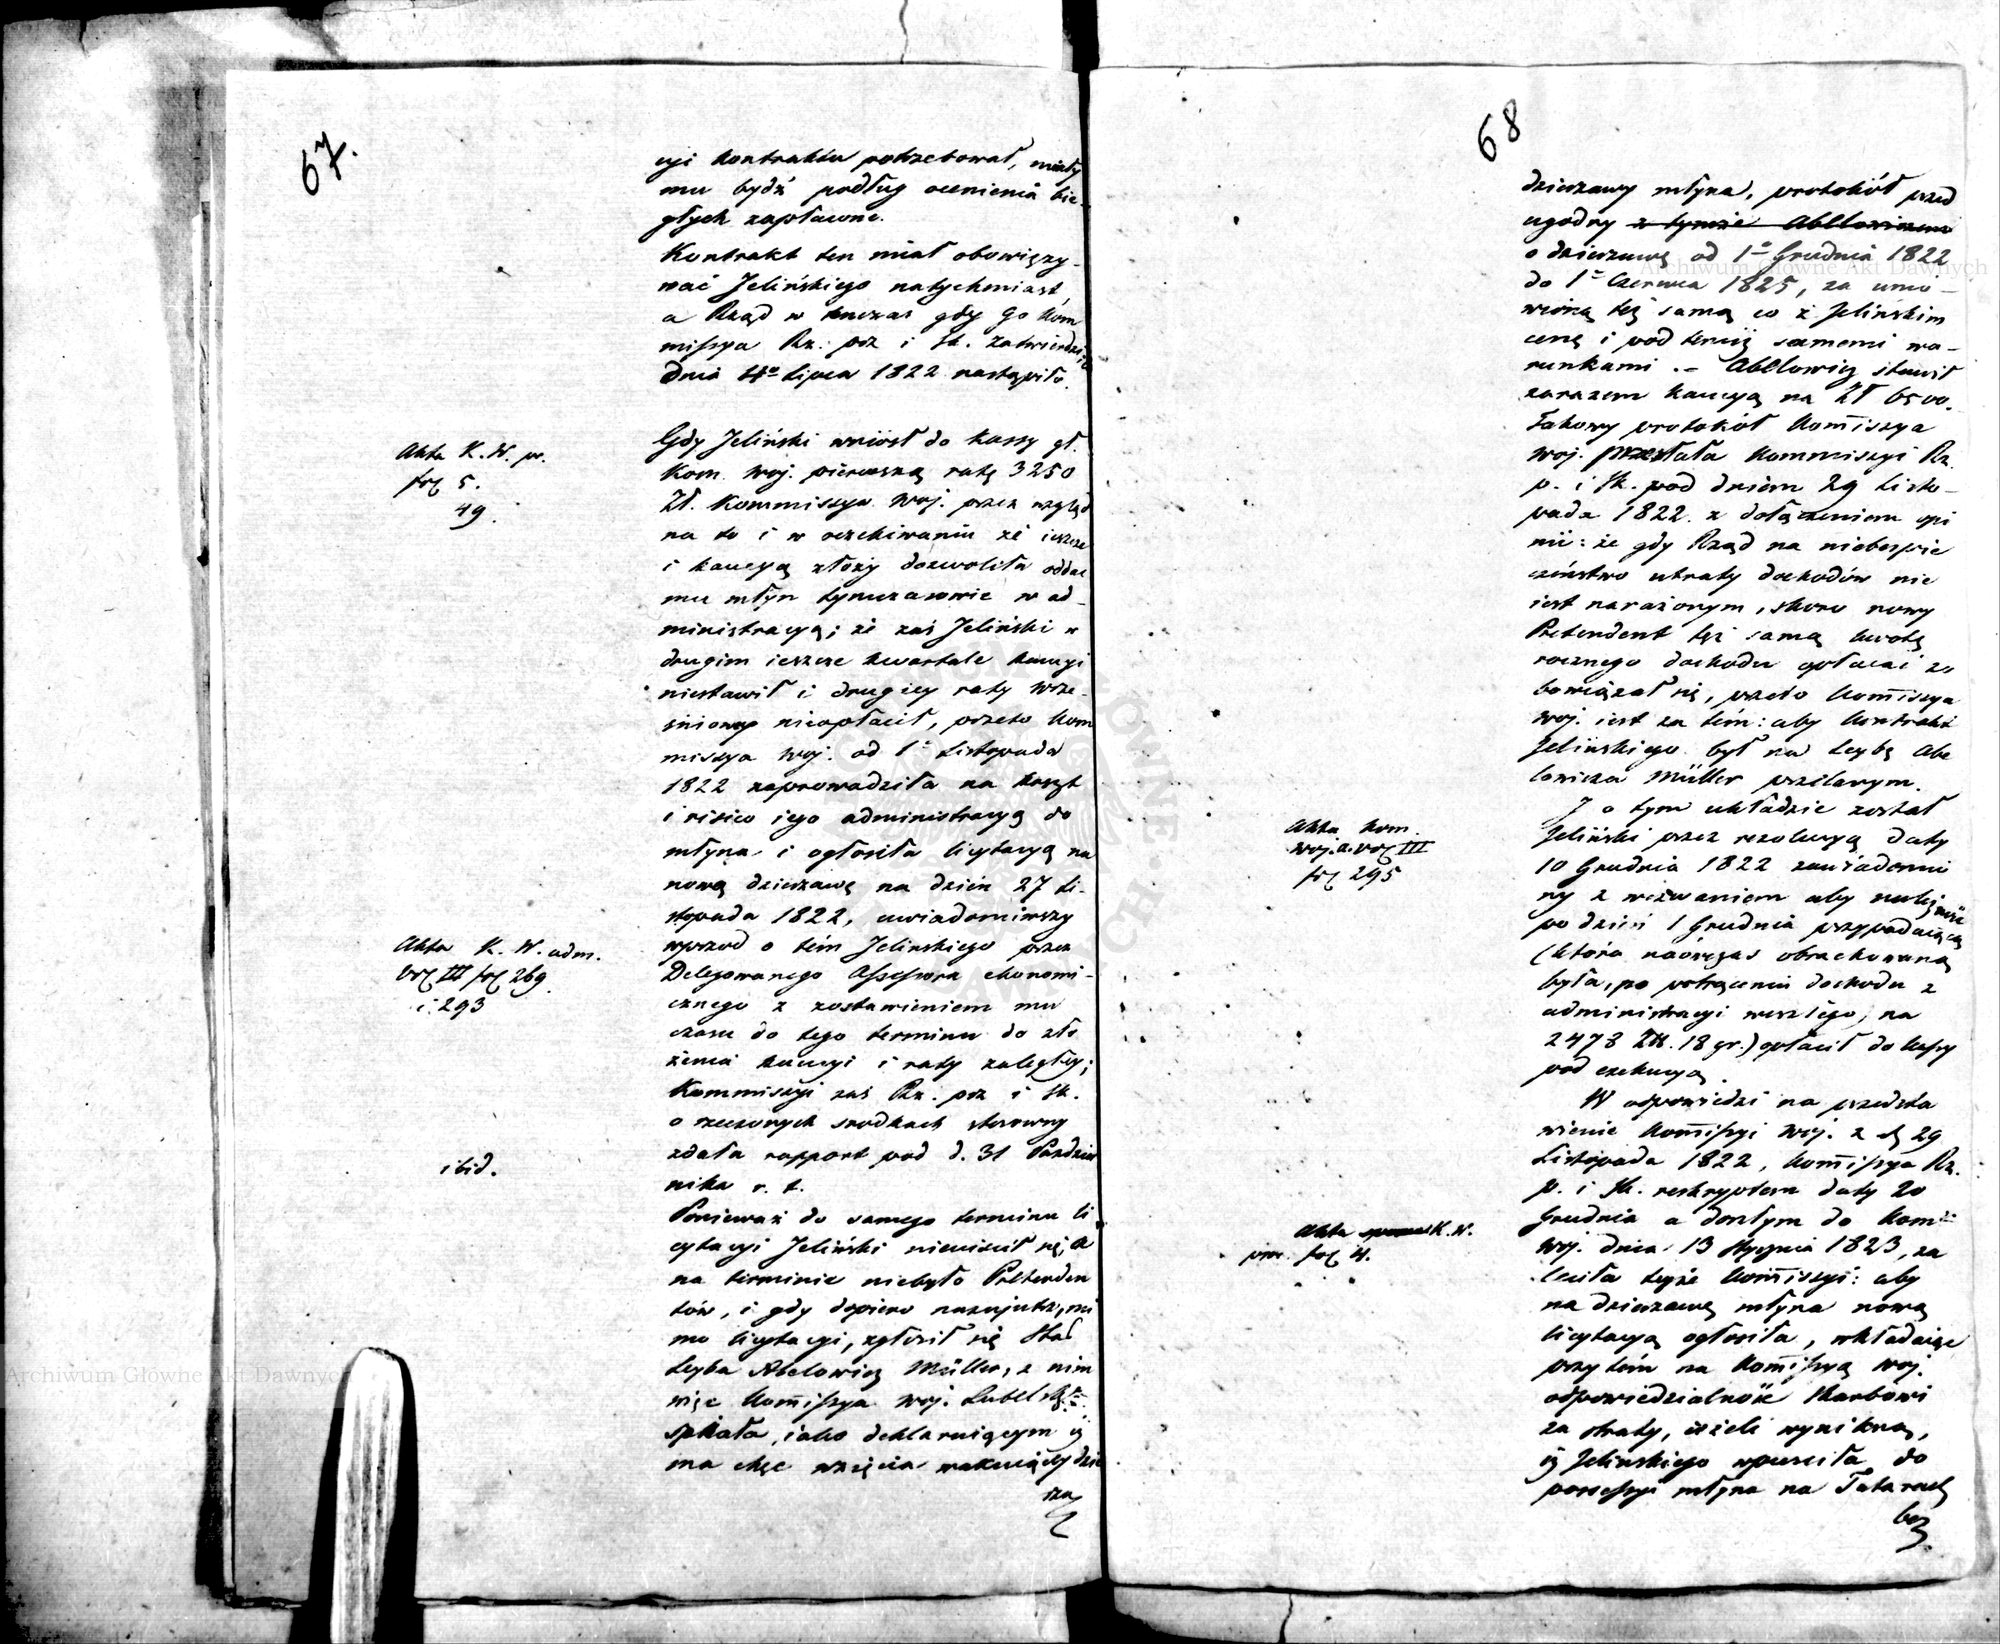 67.
cyi kontraktu potrzebował, miały
mu bydź podług ocenienia bie-
głych zapłacone.
Kontrakt ten miał obowięzy-
wać Jelińskiego natychmiast,
a Rząd w tenczas gdy go Kom
missya Rz: prz i sk. zatwierdzi co
dnia 4° Lipca 1822 nastąpiło.
Akta K. W. pr.
fol 5.
49.
Gdy Jeliński wniósł do Kassy gł.
Kom. Woj. pierwszą ratę 3250
Zł. Kommissya Woj. przez wzgląd
na to i w oczekiwaniu że ieszcze
i kaucyą złoży dozwoliła oddać
mu młyn tymczasowie w ad-
ministracyą; że zaś Jeliński w
drugim ieszcze kwartale kaucyi
niestawił i drugiey raty wrze-
śniowey nieopłacił, przeto Kom
missya Woj. od 1° Listopada
1822 zaprowadziła na koszt
i risico iego administracyą do
młyna i ogłosiła licytacyą na
nową dzierzawę na dzień 27 Li-
stopada 1822, uwiadomiwszy
Akta K. W. adm.
Vol III fol 269
i 293
wprzod o tém Jelinskiego przez
Delegowanego Assessora ekonomi-
cznego z zostawieniem mu
czasu do tego terminu do zło
żenia kaucyi i raty zaległey;
Kommissyi zaś Rz. prz i sk.
o rzeczonych srodkach stosowny
zdała rapport pod d. 31 Paździer
ibid.
nika r. t.
Ponieważ do samego terminu li
cytacyi Jeliński nieuiścił się, a
na terminie niebyło Pretenden
tów, i gdy dopiero nazajutrz, mi
mo licytacyi, zgłosił się Star
Leyba Abelowicz Müller, z nim
więc Kom̄issya Woj. Lubelska
spisała, iako deklaruiącym iż
ma chęc wzięcia wakuiącey dzie
rza
68
dzierzawy młyna, protokół przed
ugodny z tymże Abelowiczem
o dzierzawę od 1° Grudnia 1822
do 1° Czerwca 1825, za umó-
wioną tęż samą co z Jelińskim
cenę i pod temiż samemi wa-
runkami.- Abelowicz stawił
zarazem kaucyą na Zł 6500.
Takowy protokół Kom̄issya
Woj. przesłała Kommissyi Rz.
p. i sk. pod dniem 29 Listo-
pada 1822. z dołączeniem opi
nii: że gdy Rząd na niebespie
czeństwo utraty dochodów nie
iest narażonym, skoro nowy
Pretendent tęż samą kwotę
rocznego dochodu opłacać zo
bowiązał się, przeto Kom̄issya
Woj. iest za tém: aby kontrakt
Jelińskiego był na Leybę Abe
lowicza Müller przelanym.
I o tym układzie został
Akta Kom.
Woj. a. Vol III
fol 295
Jeliński przez rezolucyą daty
10 Grudnia 1822 zawiadomio
ny z wezwaniem aby należność
po dzień 1 Grudnia przypadaiącą
(która naówczas obrachowaną
była, po potrąceniu dochodu z
administracyi weszłego, na
2478 Zł. 18 gr.) opłacił do kassy
pod exekucyą.
W odpowiedzi na przedsta
wienie Kom̄issyi Woj. z d. 29
Listopada 1822, Kom̄issya Rz.
p. i sk. reskryptem daty 20
Akta K. W.
pier. fol 4.
Grudnia a doszłym do Kom:
Woj. dnia 13 Stycznia 1823, za
leciła teyże Kom̄issyi: aby
na dzierzawę młyna nową
licytacyą ogłosiła, wkładaiąc
przytém na Kom̄issyą Woj.
odpowiedzialność Skarbowi
za straty, ieżeli wynikną,
iż Jelińskiego wpuściła do
possessyi młyna na Tatarach
bez
Archiwum Główne Akt Dawnych
Archiwum Główne Akt Dawnych